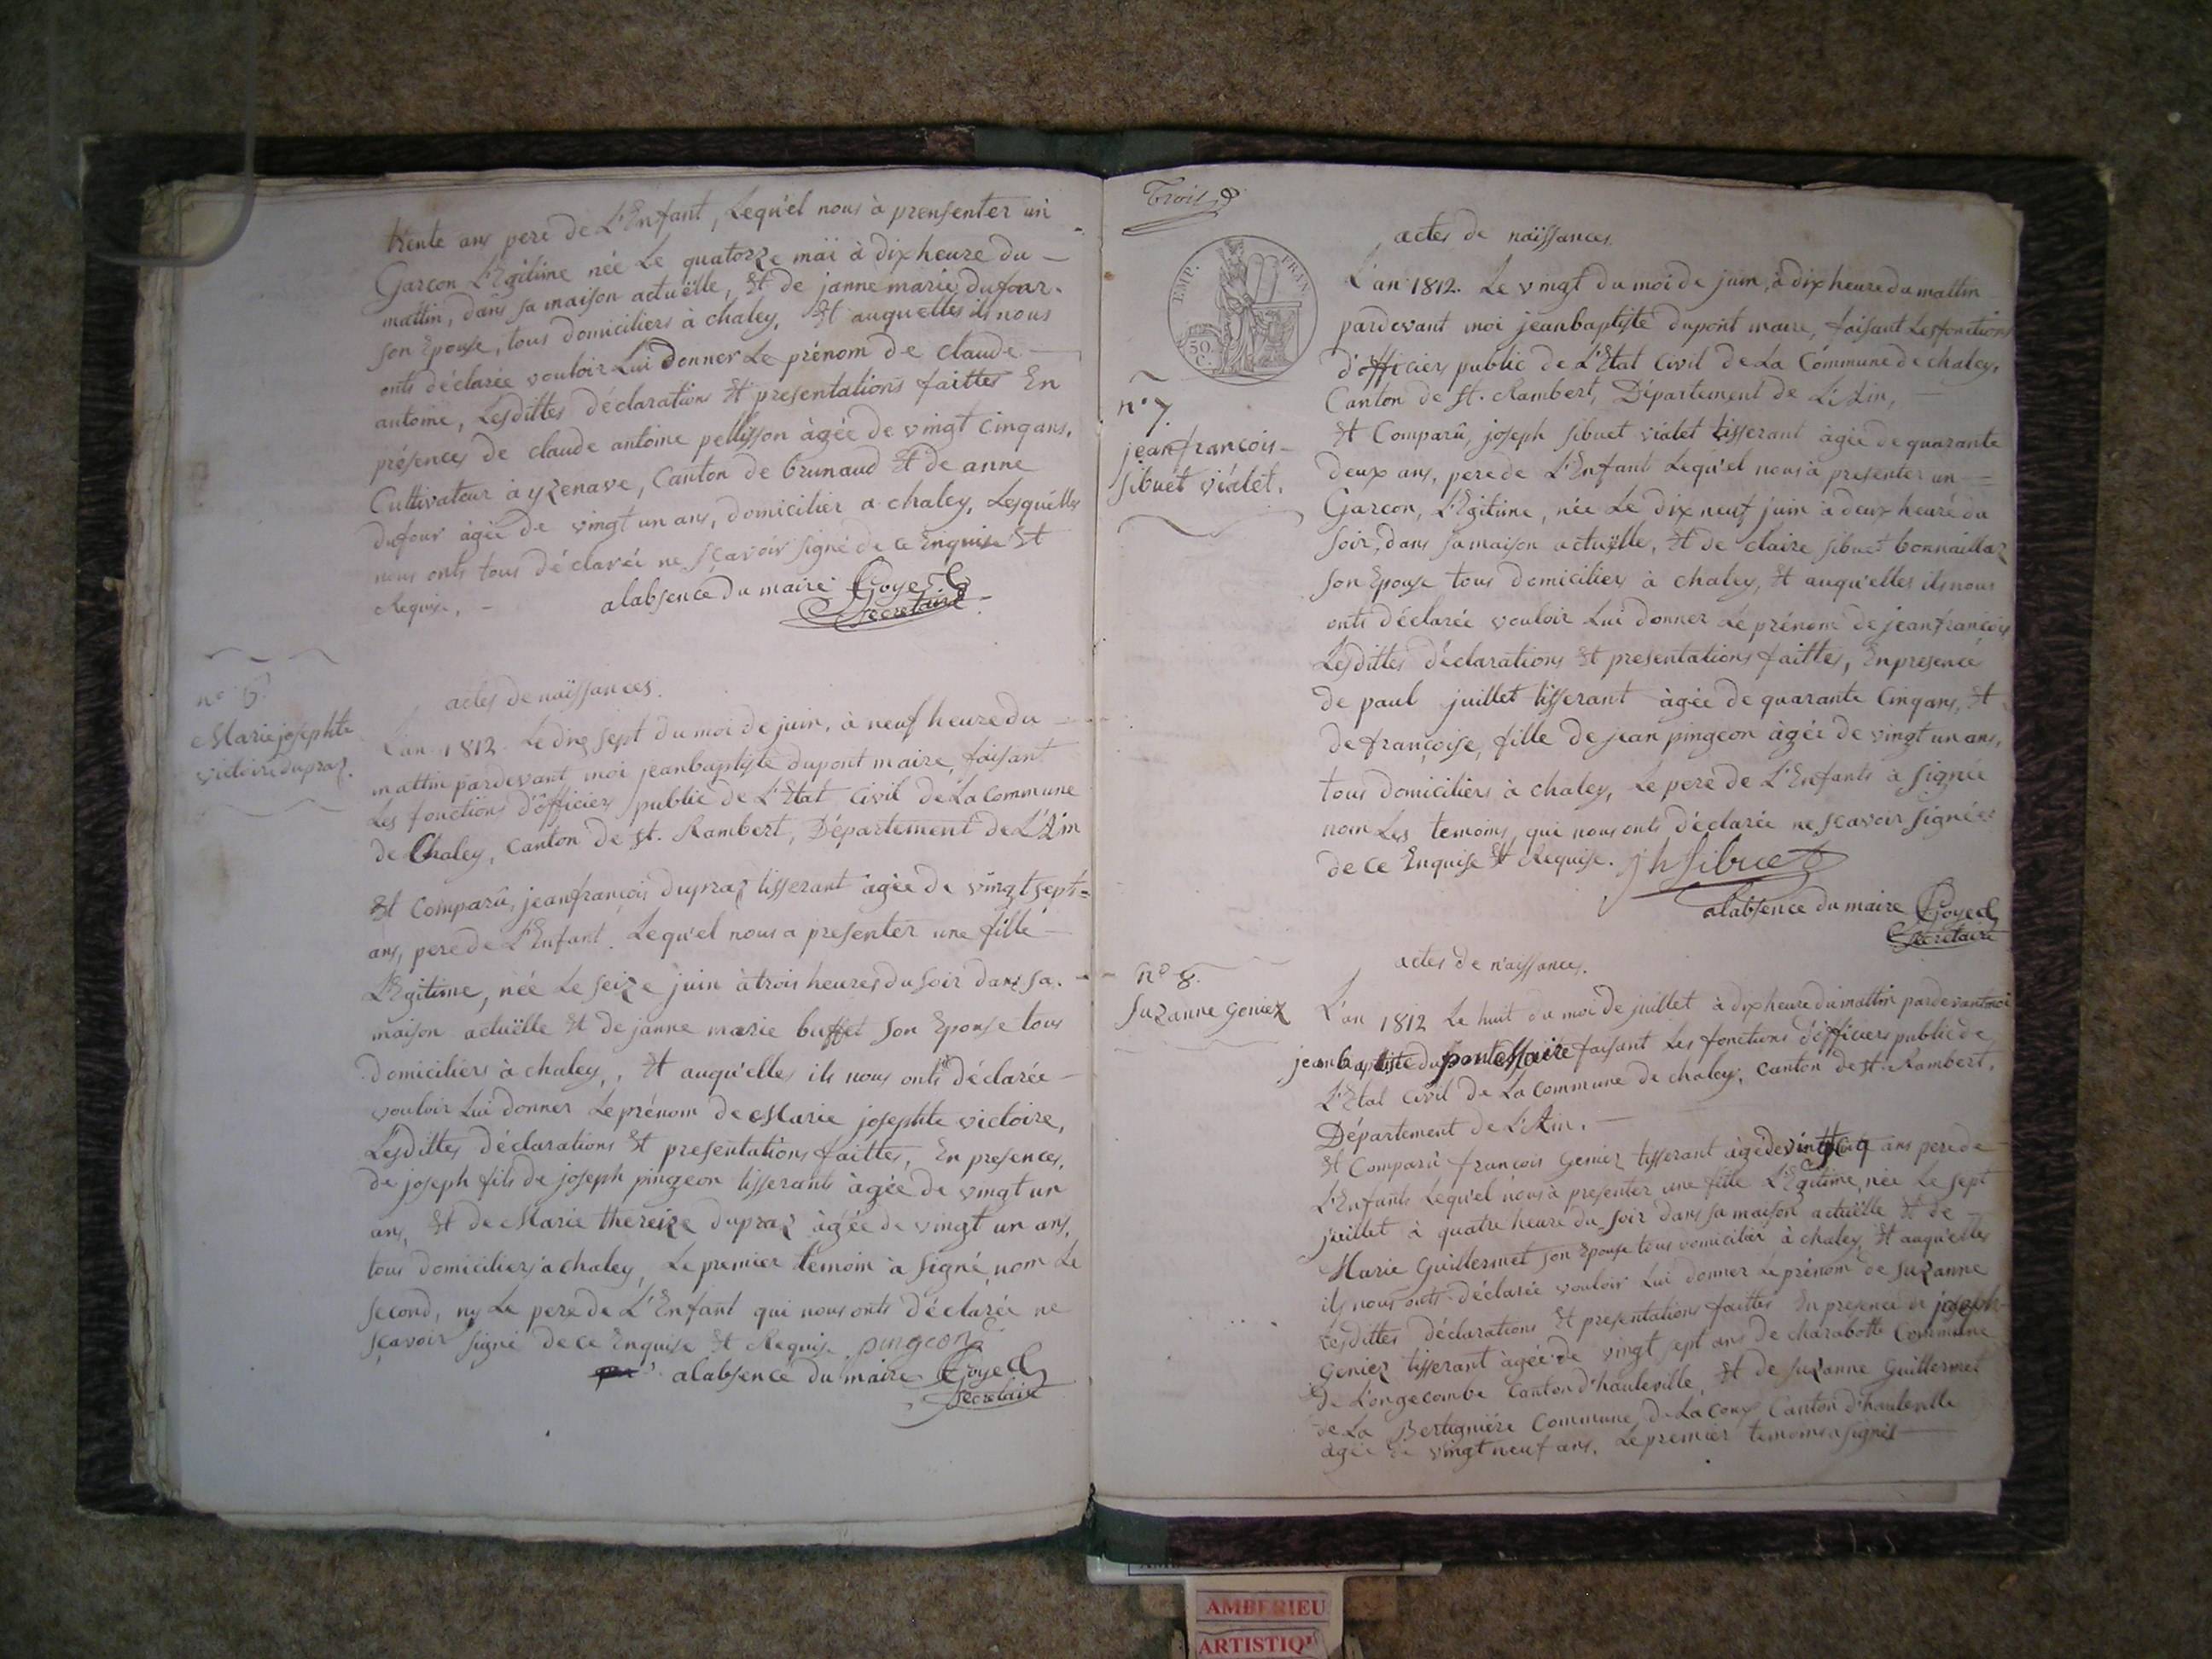 trente ans pere de L'Enfant, Lequ'el nous à prensenter un
Garcon L'Egitime née Le quatorze mai à dix heure du
mattin, dans sa maison actuëlle, Et de janne marie dufour
son Epouse, tous domiciliers à chaley, Et auquelles ils nous
onts déclarée vouloir Lui donner Le prénom de claude
antoine, Lesdittes déclarations Et presentations faittes En
présences de claude antoine pellisson àgée de vingt cinq ans,
Cultivateur à yzenave, Canton de brunaud Et de anne
dufour àgée de vingt un ans, domicilier a chaley, Lesquélles
nous onts tous déclaréé ne sçavoir signé de ce Enquise Et
Requise.
alabsence du maire Goyet
Secretaire
actes de naissances.
Marie josephte
victoire dupraz.
L'an 1812. Le dix sept du moi de juin, à neuf heure du
mattin pardevant moi jeanbaptiste dupont maire, faisant
Les fonctions d'officiers public de L'Etat Civil de La Commune
de Chaley, Canton de St. Rambert, Département de L'Ain
Et Comparû, jeanfrançois dupraz tisserant àgée de vingt sept=
ans, pere de L'Enfant. Lequ'el nous a presenter une fille
L'Egitime, née Le seize juin à trois heures du soir dans sa
maison actuëlle Et de janne marie buffet son Epouse tous
domiciliers à chaley, Et auqu'elles ils nous onts déclarée
vouloir Lui donner Le prénom de Marie josephte victoire,
Lesdittes déclarations Et presentations faittes, En presences,
de joseph fils de joseph pingeon tisserants àgée de vingt un
ans, Et de Marie thereize dupraz àgée de vingt un ans,
tous domiciliers a chaley, Le premier temoin a signé, nom Le
second, ny Le pere de L'Enfant qui nous onts déclarée ne
sçavoir signé de ce Enquise Et Requise. pingeon
alabsence du maire Goyet
Secretaire
Trois
EMP. FRAN.
50 C.
actes de naissances.
n° 7.
jean françois
sibuet vialet.
L'an 1812. Le vingt du moi de juin, à dix heure du mattin
pardevant moi jeanbaptiste dupont maire, faisant Les fonctions
d'officiers public de L'Etat Civil de La Commune de chaley,
Canton de St. Rambert, Département de L'Ain,
Et Comparû, joseph sibuet vialet tisserant àgée de quarante
deux ans, pere de L'Enfant Lequ'el nous à presenter un
Garcon, L'Egitime, née Le dix neuf juin a deux heure du
soir, dans sa maison actuëlle, Et de claire sibuet bonnaillaz
son Epouse tous domiciliers à chaley, Et auqu'elles ils nous
onts déclarée vouloir Lui donner Le prénom de jean françois
Lesdittes déclarations Et presentations faittes, En presence
de paul juillet tisserant àgée de quarante Cinq ans, Et
de françoise, fille de jean pingeon àgée de vingt un ans,
tous domiciliers à chaley, Le pere de L'Enfants à signée
nom Les temoins, qui nous onts déclarée ne scavoir signée
de ce Enquise Et Requise. jh Sibuet
alabsence du maire Goyet
Secretaire
actes de naissances.
n° 8.
Suzanne Geniez
L'an 1812 Le huit du moi de juillet à dix heure du mattin pardevant moi
jean baptiste dupont Maire faisant Les fonctions d'officiers public de
L'Etat Civil de La Commune de chaley, Canton de St. Rambert,
Département de L'Ain.
Et Comparû françois Geniez tisserant àgé de vingt cinq ans pere de
L'Enfants Lequ'el nous à presenter une fille L'Egitime, née Le sept
juillet à quatre heure du soir dans sa maison actuëlle Et de
Marie Guillermet son Epouse tous domicilier à chaley, Et auqu'elles
ils nous onts déclarée vouloir Lui donner Le prénom de Suzanne
Lesdittes déclarations Et presentations faittes En presence de joseph
Geniez tisserant àgée de vingt sept ans de charabotte Commune
de Longecombe Canton d'hauteville, Et de Suzanne Guillermet
de La Bertignière Commune de La coux Canton d'hauteville
àgée de vingt neuf ans. Le premier temoins a signés
AMBERIEU
ARTISTIQU